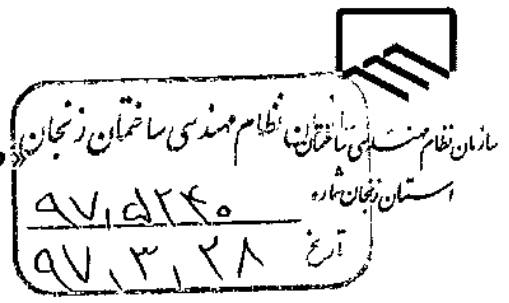 سازمان نظام مهندسی ساختمان
استان زنجان شماره
نظام مهندسی ساختمان زنجان
۹۷٫۵۲۴۰
تاریخ
۹۷٫۳٫۲۸